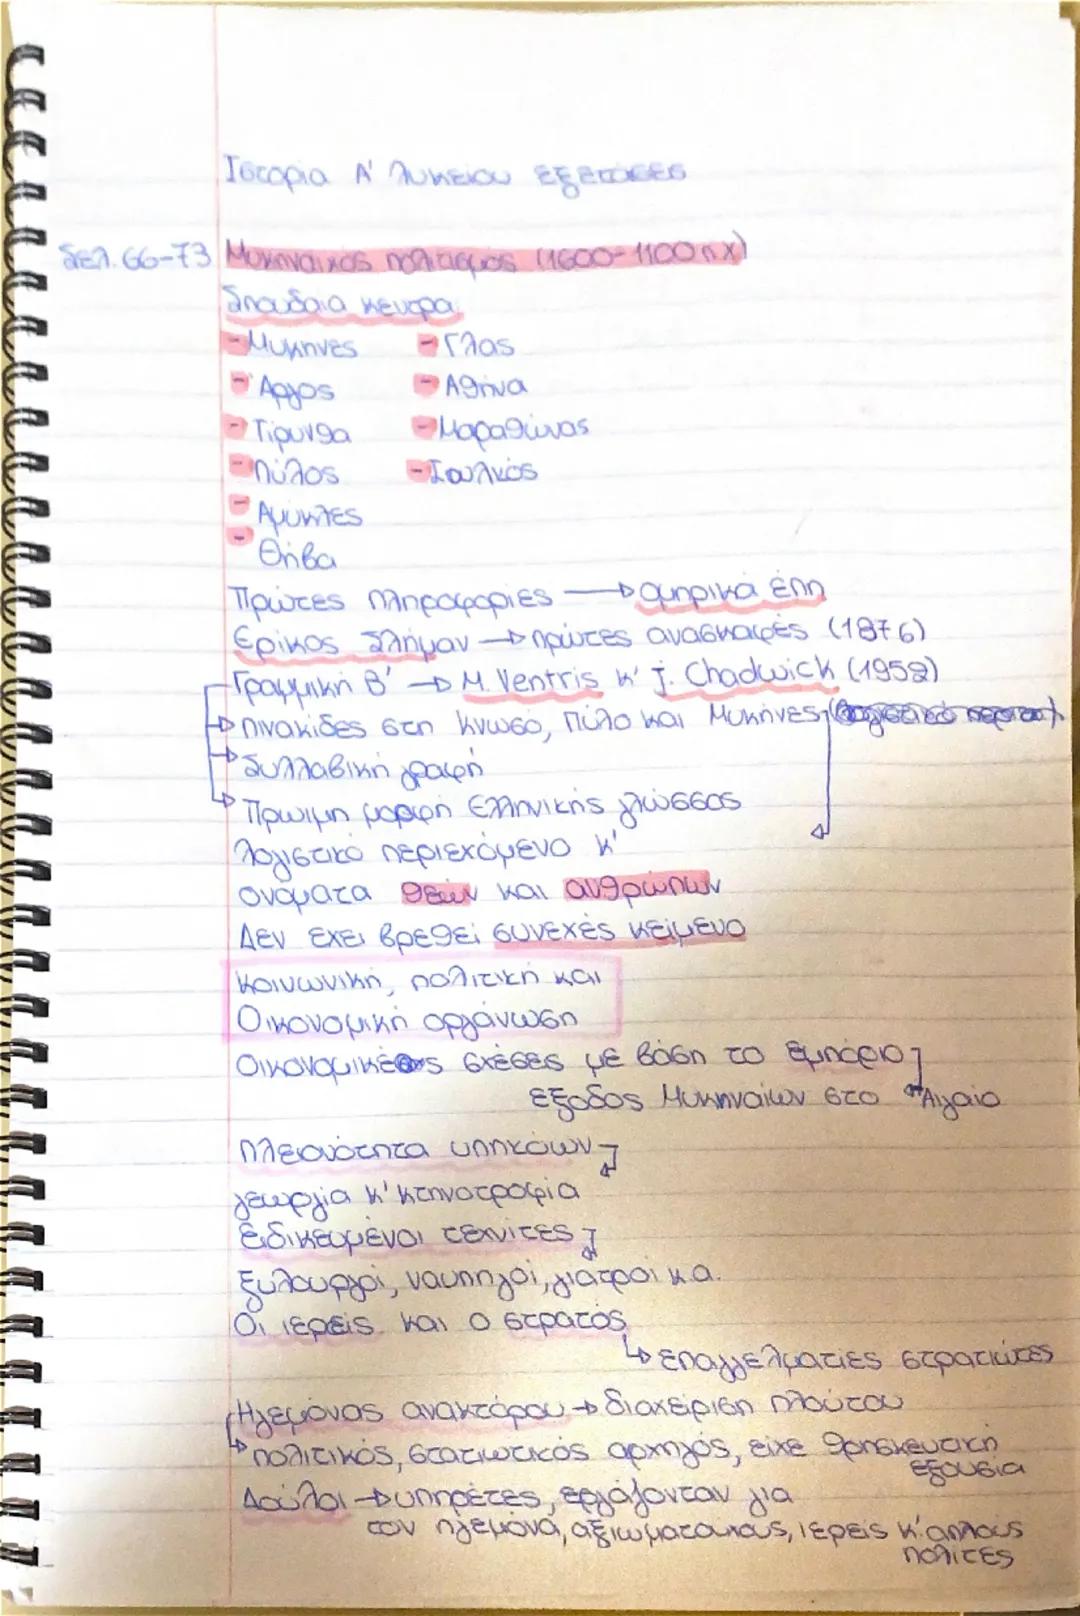 Ιστορία Α' Λυκείου εξετάσεις
σελ. 66-73 Μυκηναϊκός πολιτισμός (1600-1100 π.Χ)
Σπουδαία κέντρα:
- Μυκήνες - Γλας
- Άργος - Αθήνα
- Τίρυνθα - Μαραθώνας
- Πύλος - Ιωλκός
- Αμύκλες
- Θήβα
Πρώτες πληροφορίες → ομηρικά έπη
Ερίκος Σλήμαν → πρώτες ανασκαφές (1876)
Γραμμική Β' → M. Ventris κ' J. Chadwick (1952)
→ πινακίδες στη Κνωσό, Πύλο και Μυκήνες
→ Συλλαβική γραφή
→ Πρώιμη μορφή Ελληνικής γλώσσας
λογιστικό περιεχόμενο κ'
ονόματα θεών και ανθρώπων
Δεν έχει βρεθεί συνεχές κείμενο
Κοινωνική, πολιτική και
Οικονομική οργάνωση
Οικονομικές σχέσεις με βάση το εμπόριο
εξοδος Μυκηναίων στο Αιγαίο
Πλειονότητα υπηκόων
γεωργία κ' κτηνοτροφία
Ειδικευμένοι τεχνίτες
ξυλουργοί, ναυπηγοί, γιατροί κ.α.
Οι ιερείς και ο στρατός
→ επαγγελματίες στρατιώτες
Ηγεμόνας ανακτόρου → διαχείριση πλούτου
→ πολιτικός, στατιωτικός αρχηγός, είχε θρησκευτική
εξουσία
Δούλοι → υπηρέτες, εργάζονταν για
τον ηγεμόνα, αξιωματούχους, ιερείς κ' απλούς
πολίτες